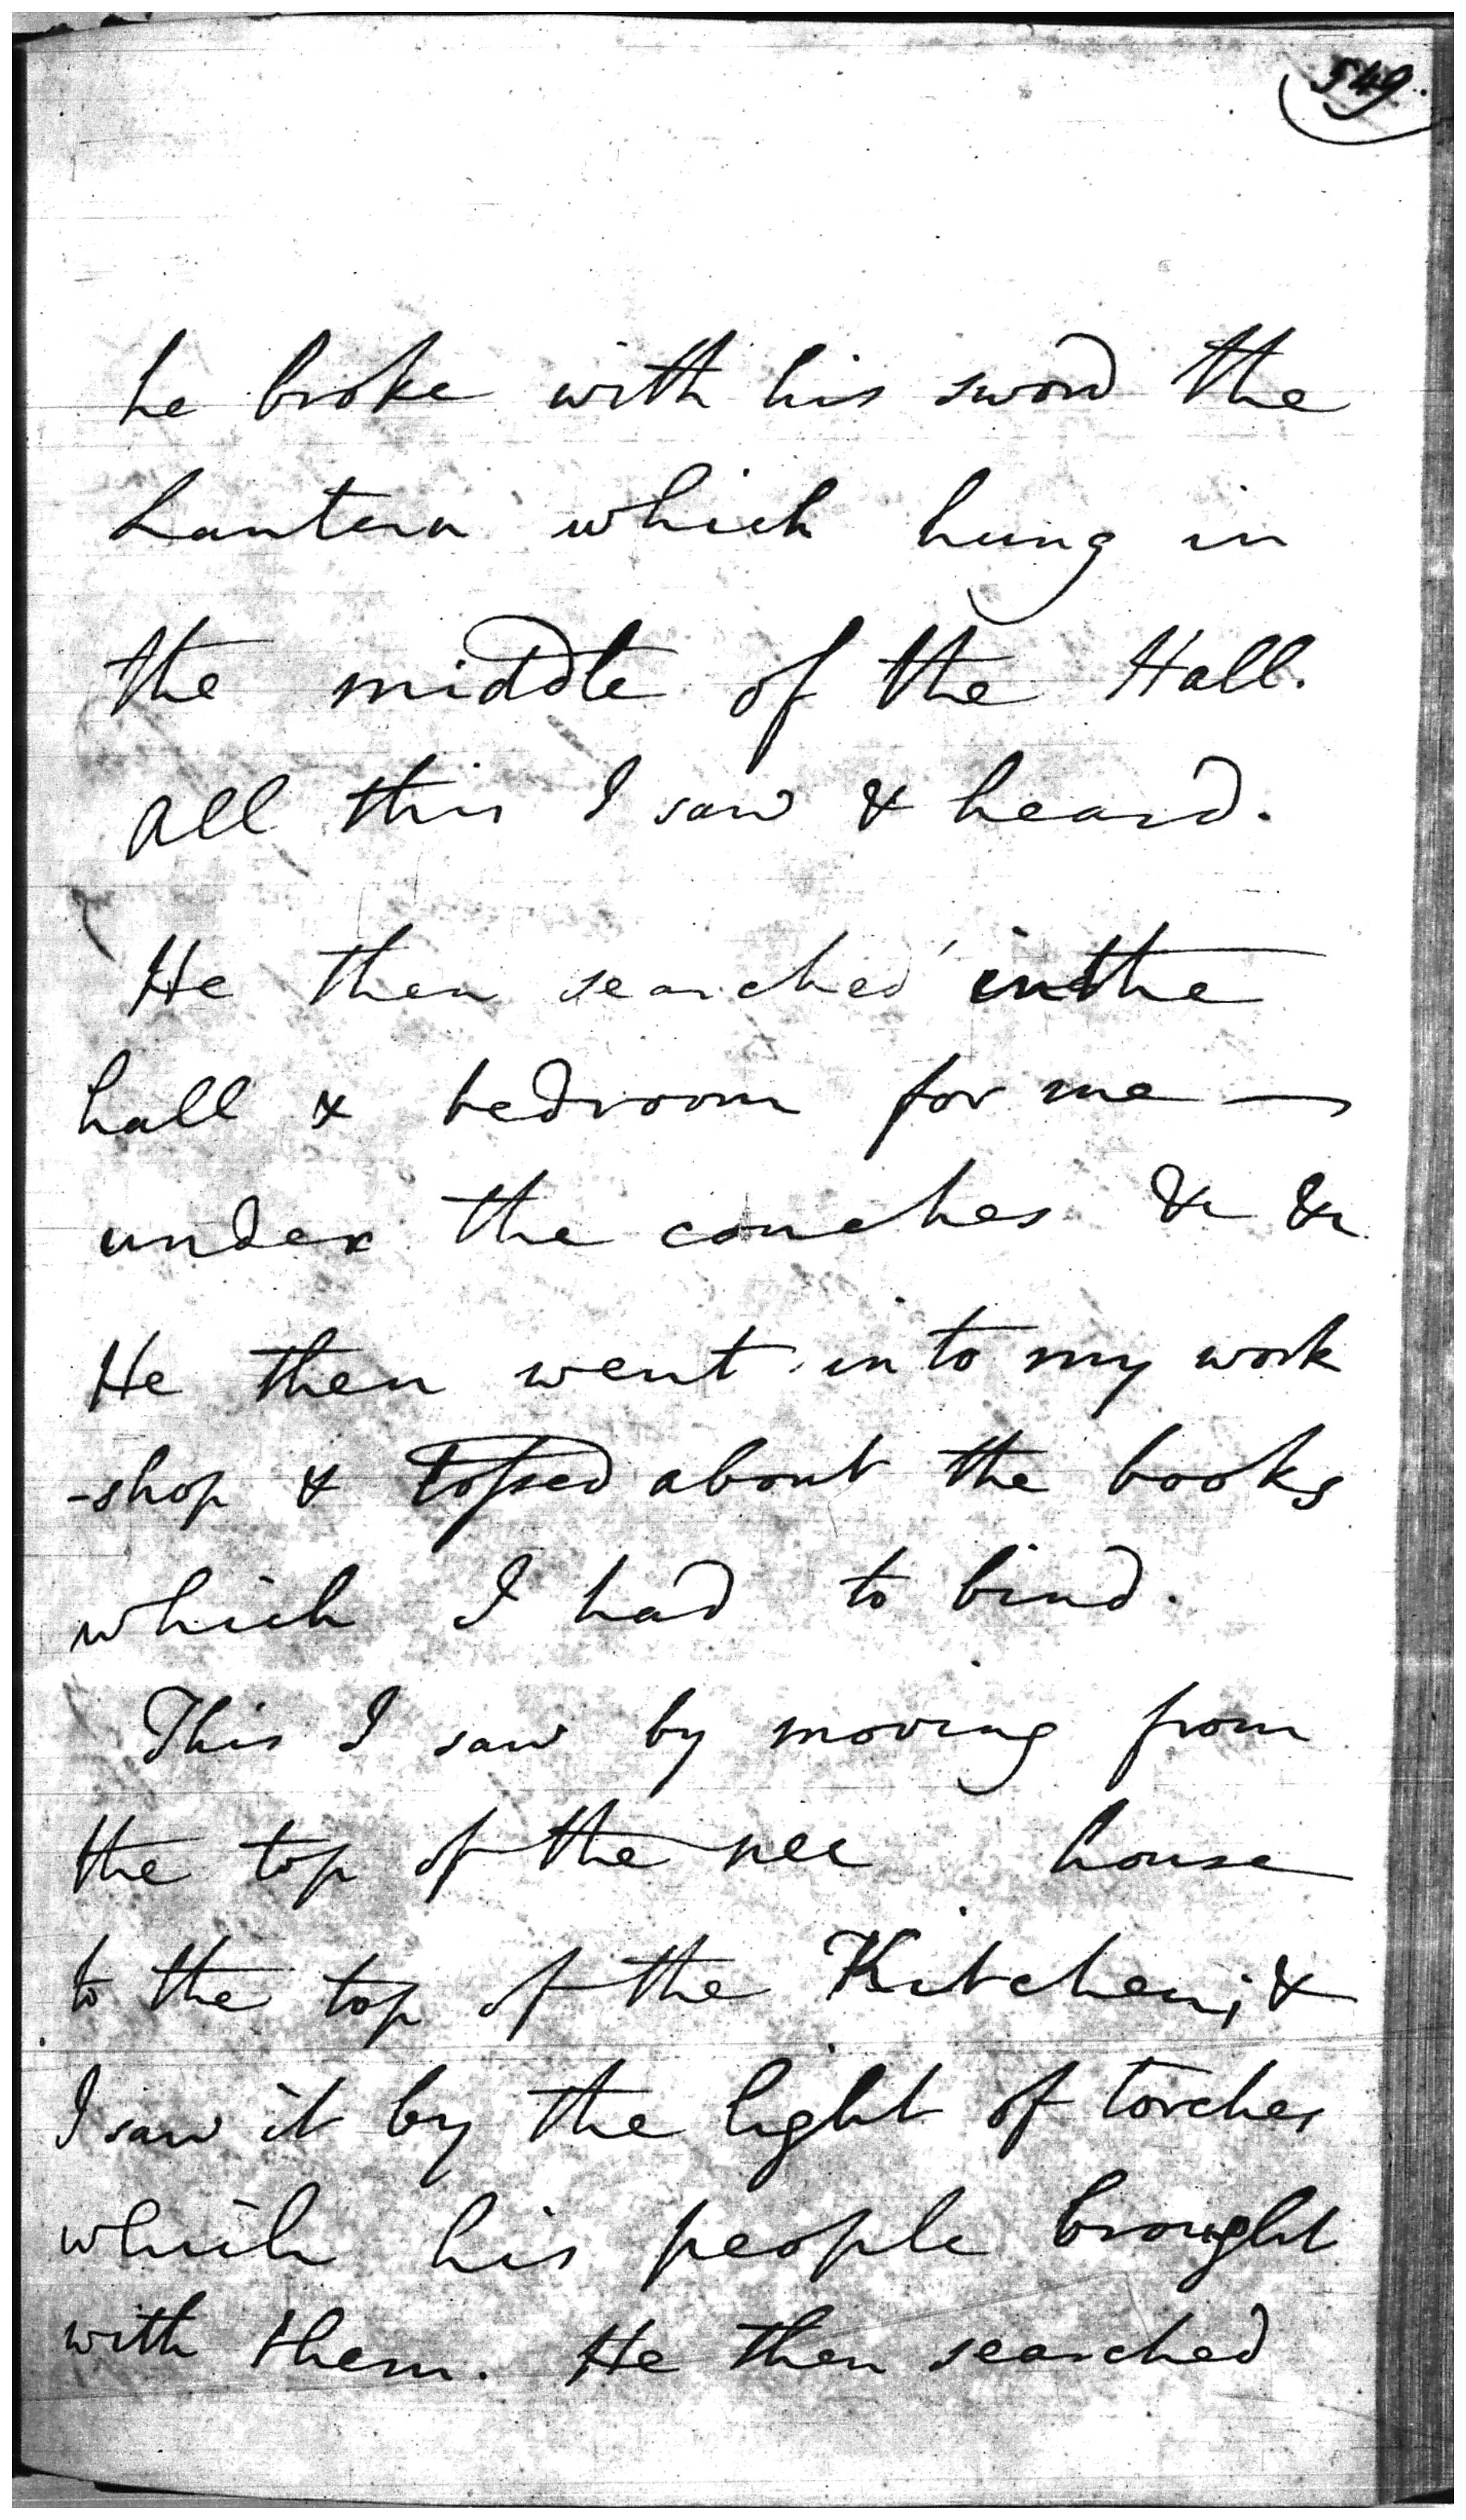 549.
he broke with his sword the
Lantern which hung in
the middle of the Hall.
All this I saw & heard.
He then searched in the
hall & bedroom for me —
under the couches &c &c
He then went into my work
-shop & tossed about the books
which I had to bind.
This I saw by moving from
the top of the house
to the top of the Kitchen; &
I saw it by the light of torches
which his people brought
with them. He then searched